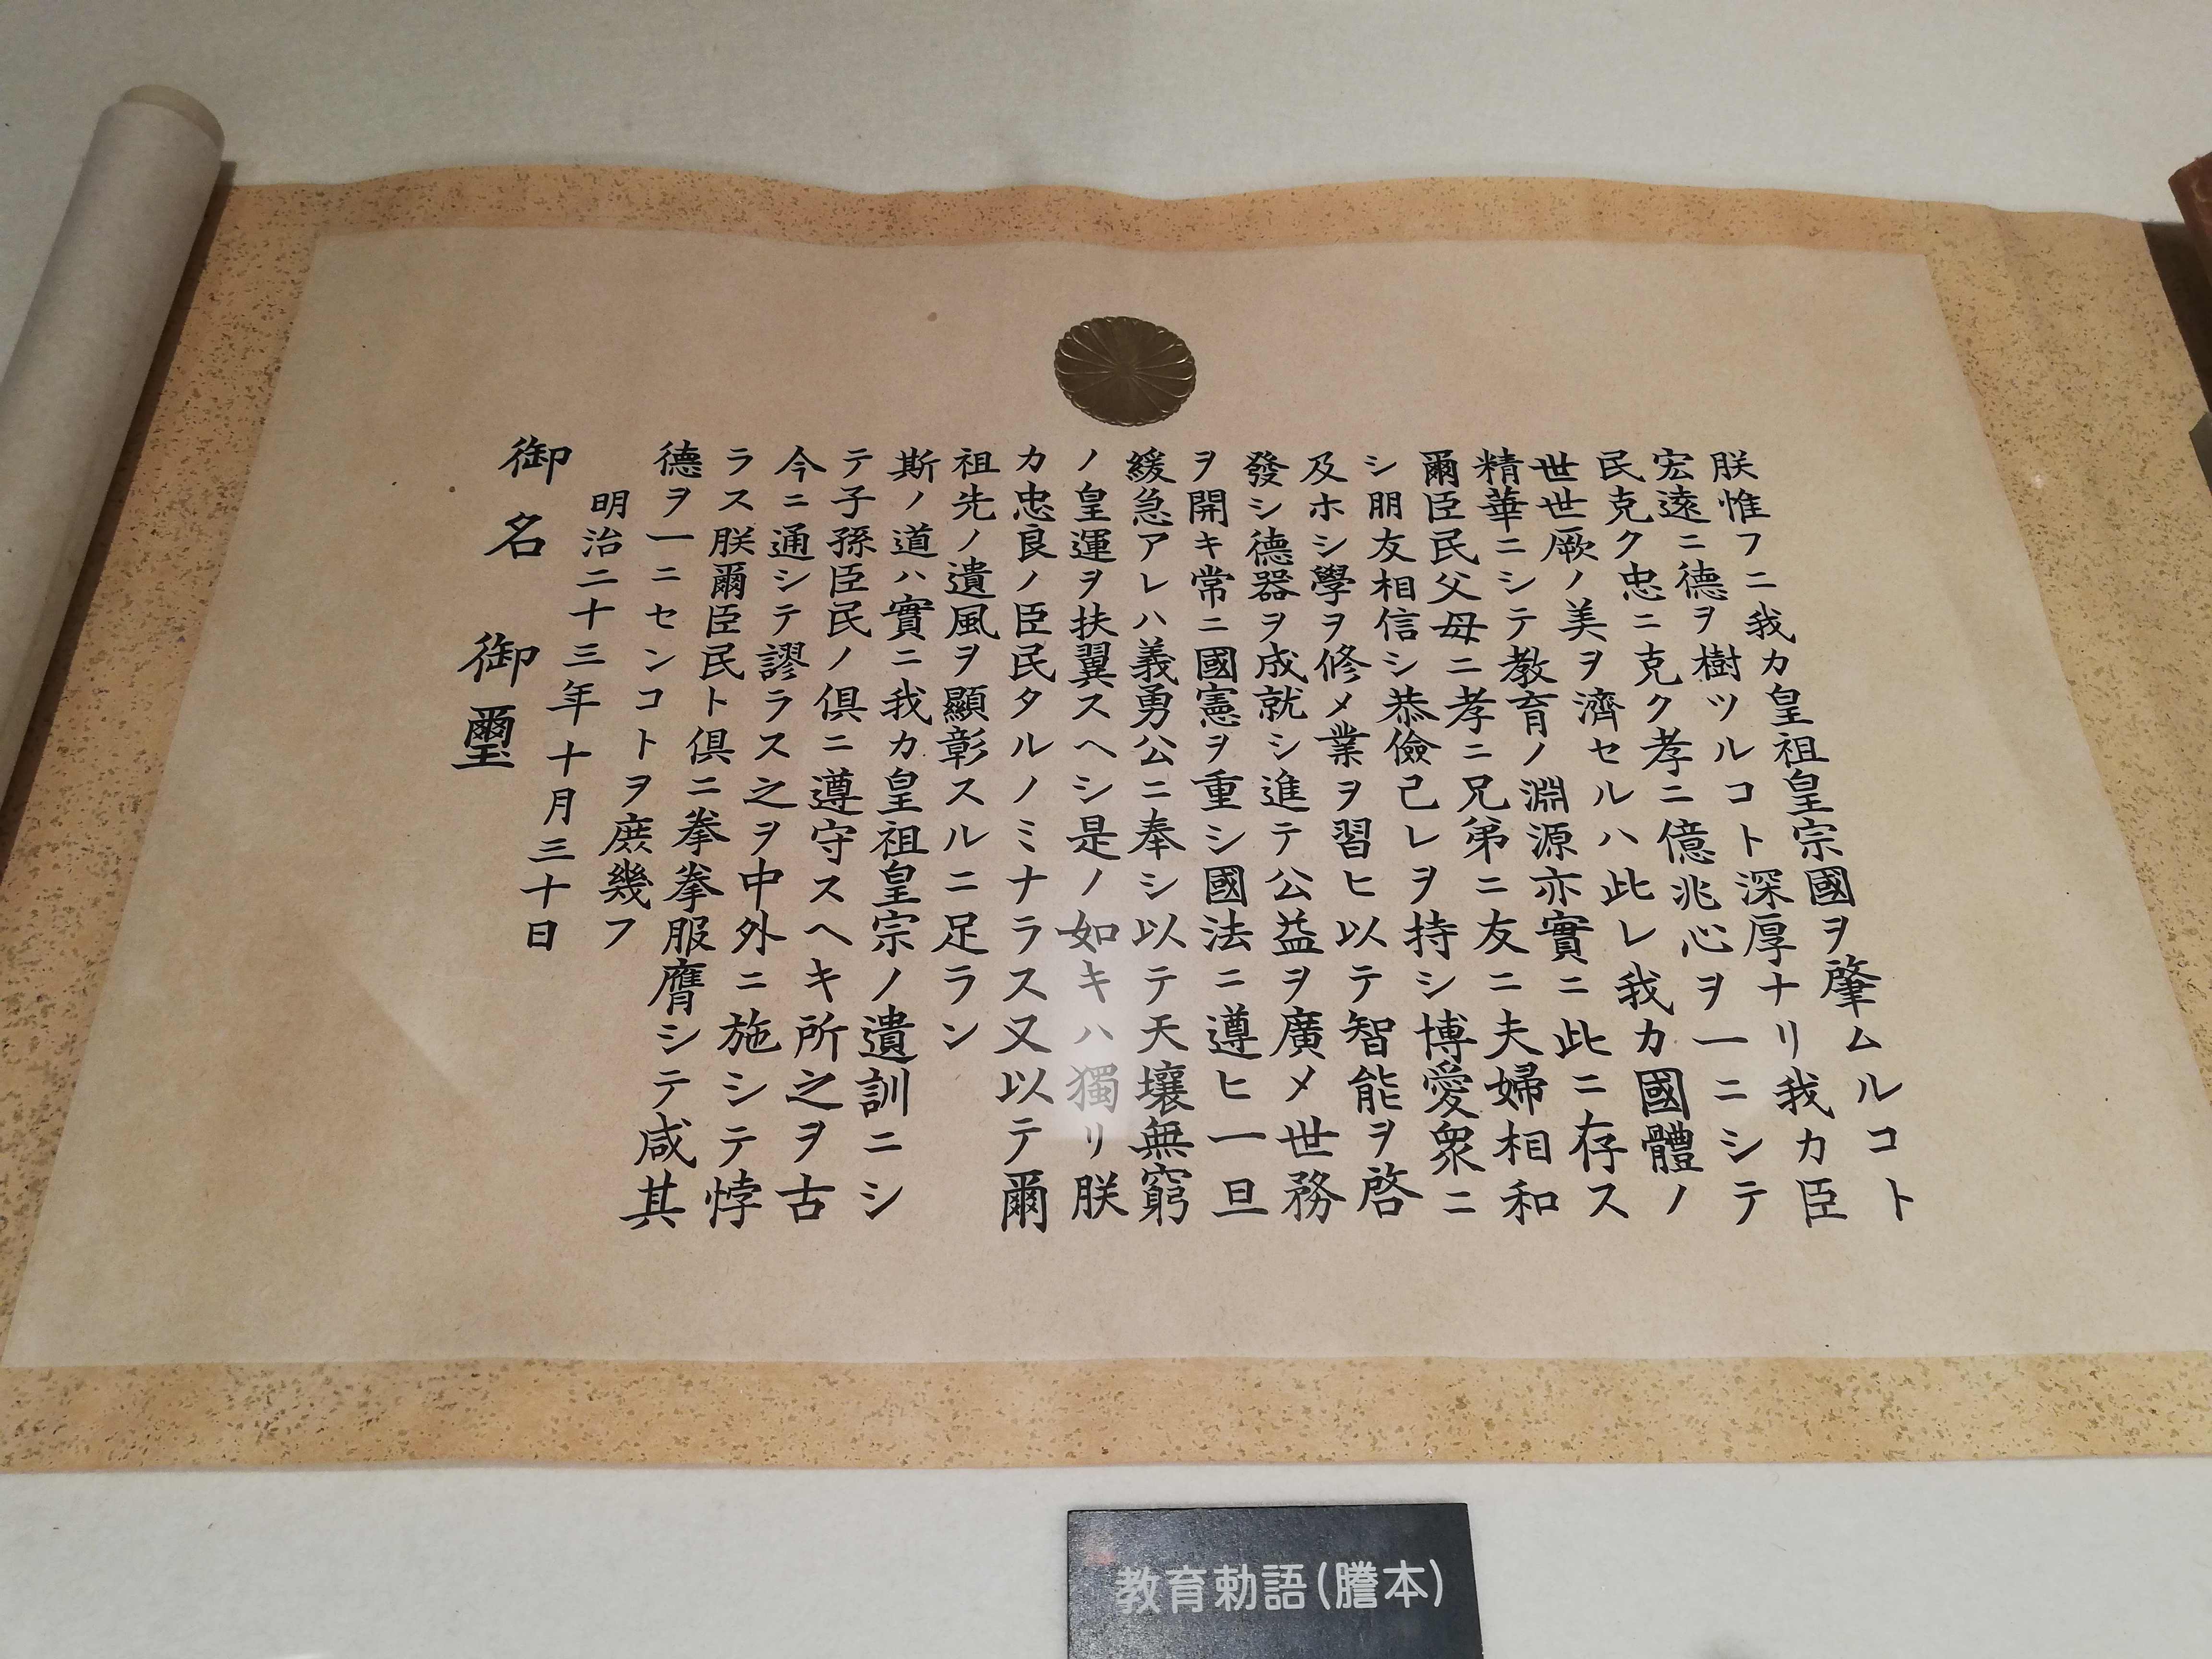 朕惟フニ我カ皇祖皇宗國ヲ肇ムルコト
宏遠ニ德ヲ樹ツルコト深厚ナリ我カ臣
民克ク忠ニ克ク孝ニ億兆心ヲ一ニシテ
世世厥ノ美ヲ濟セルハ此レ我カ國體ノ
精華ニシテ教育ノ淵源亦實ニ此ニ存ス
爾臣民父母ニ孝ニ兄弟ニ友ニ夫婦相和
シ朋友相信シ恭儉己レヲ持シ博愛衆ニ
及ホシ學ヲ修メ業ヲ習ヒ以テ智能ヲ啓
發シ德器ヲ成就シ進テ公益ヲ廣メ世務
ヲ開キ常ニ國憲ヲ重シ國法ニ遵ヒ一旦
緩急アレハ義勇公ニ奉シ以テ天壤無窮
ノ皇運ヲ扶翼スヘシ是ノ如キハ獨リ朕
カ忠良ノ臣民タルノミナラス又以テ爾
祖先ノ遺風ヲ顯彰スルニ足ラン
斯ノ道ハ實ニ我カ皇祖皇宗ノ遺訓ニシ
テ子孫臣民ノ俱ニ遵守スヘキ所之ヲ古
今ニ通シテ謬ラス之ヲ中外ニ施シテ悖
ラス朕爾臣民ト俱ニ拳拳服膺シテ咸其
德ヲ一ニセンコトヲ庶幾フ
明治二十三年十月三十日
御名 御璽
教育勅語(謄本)